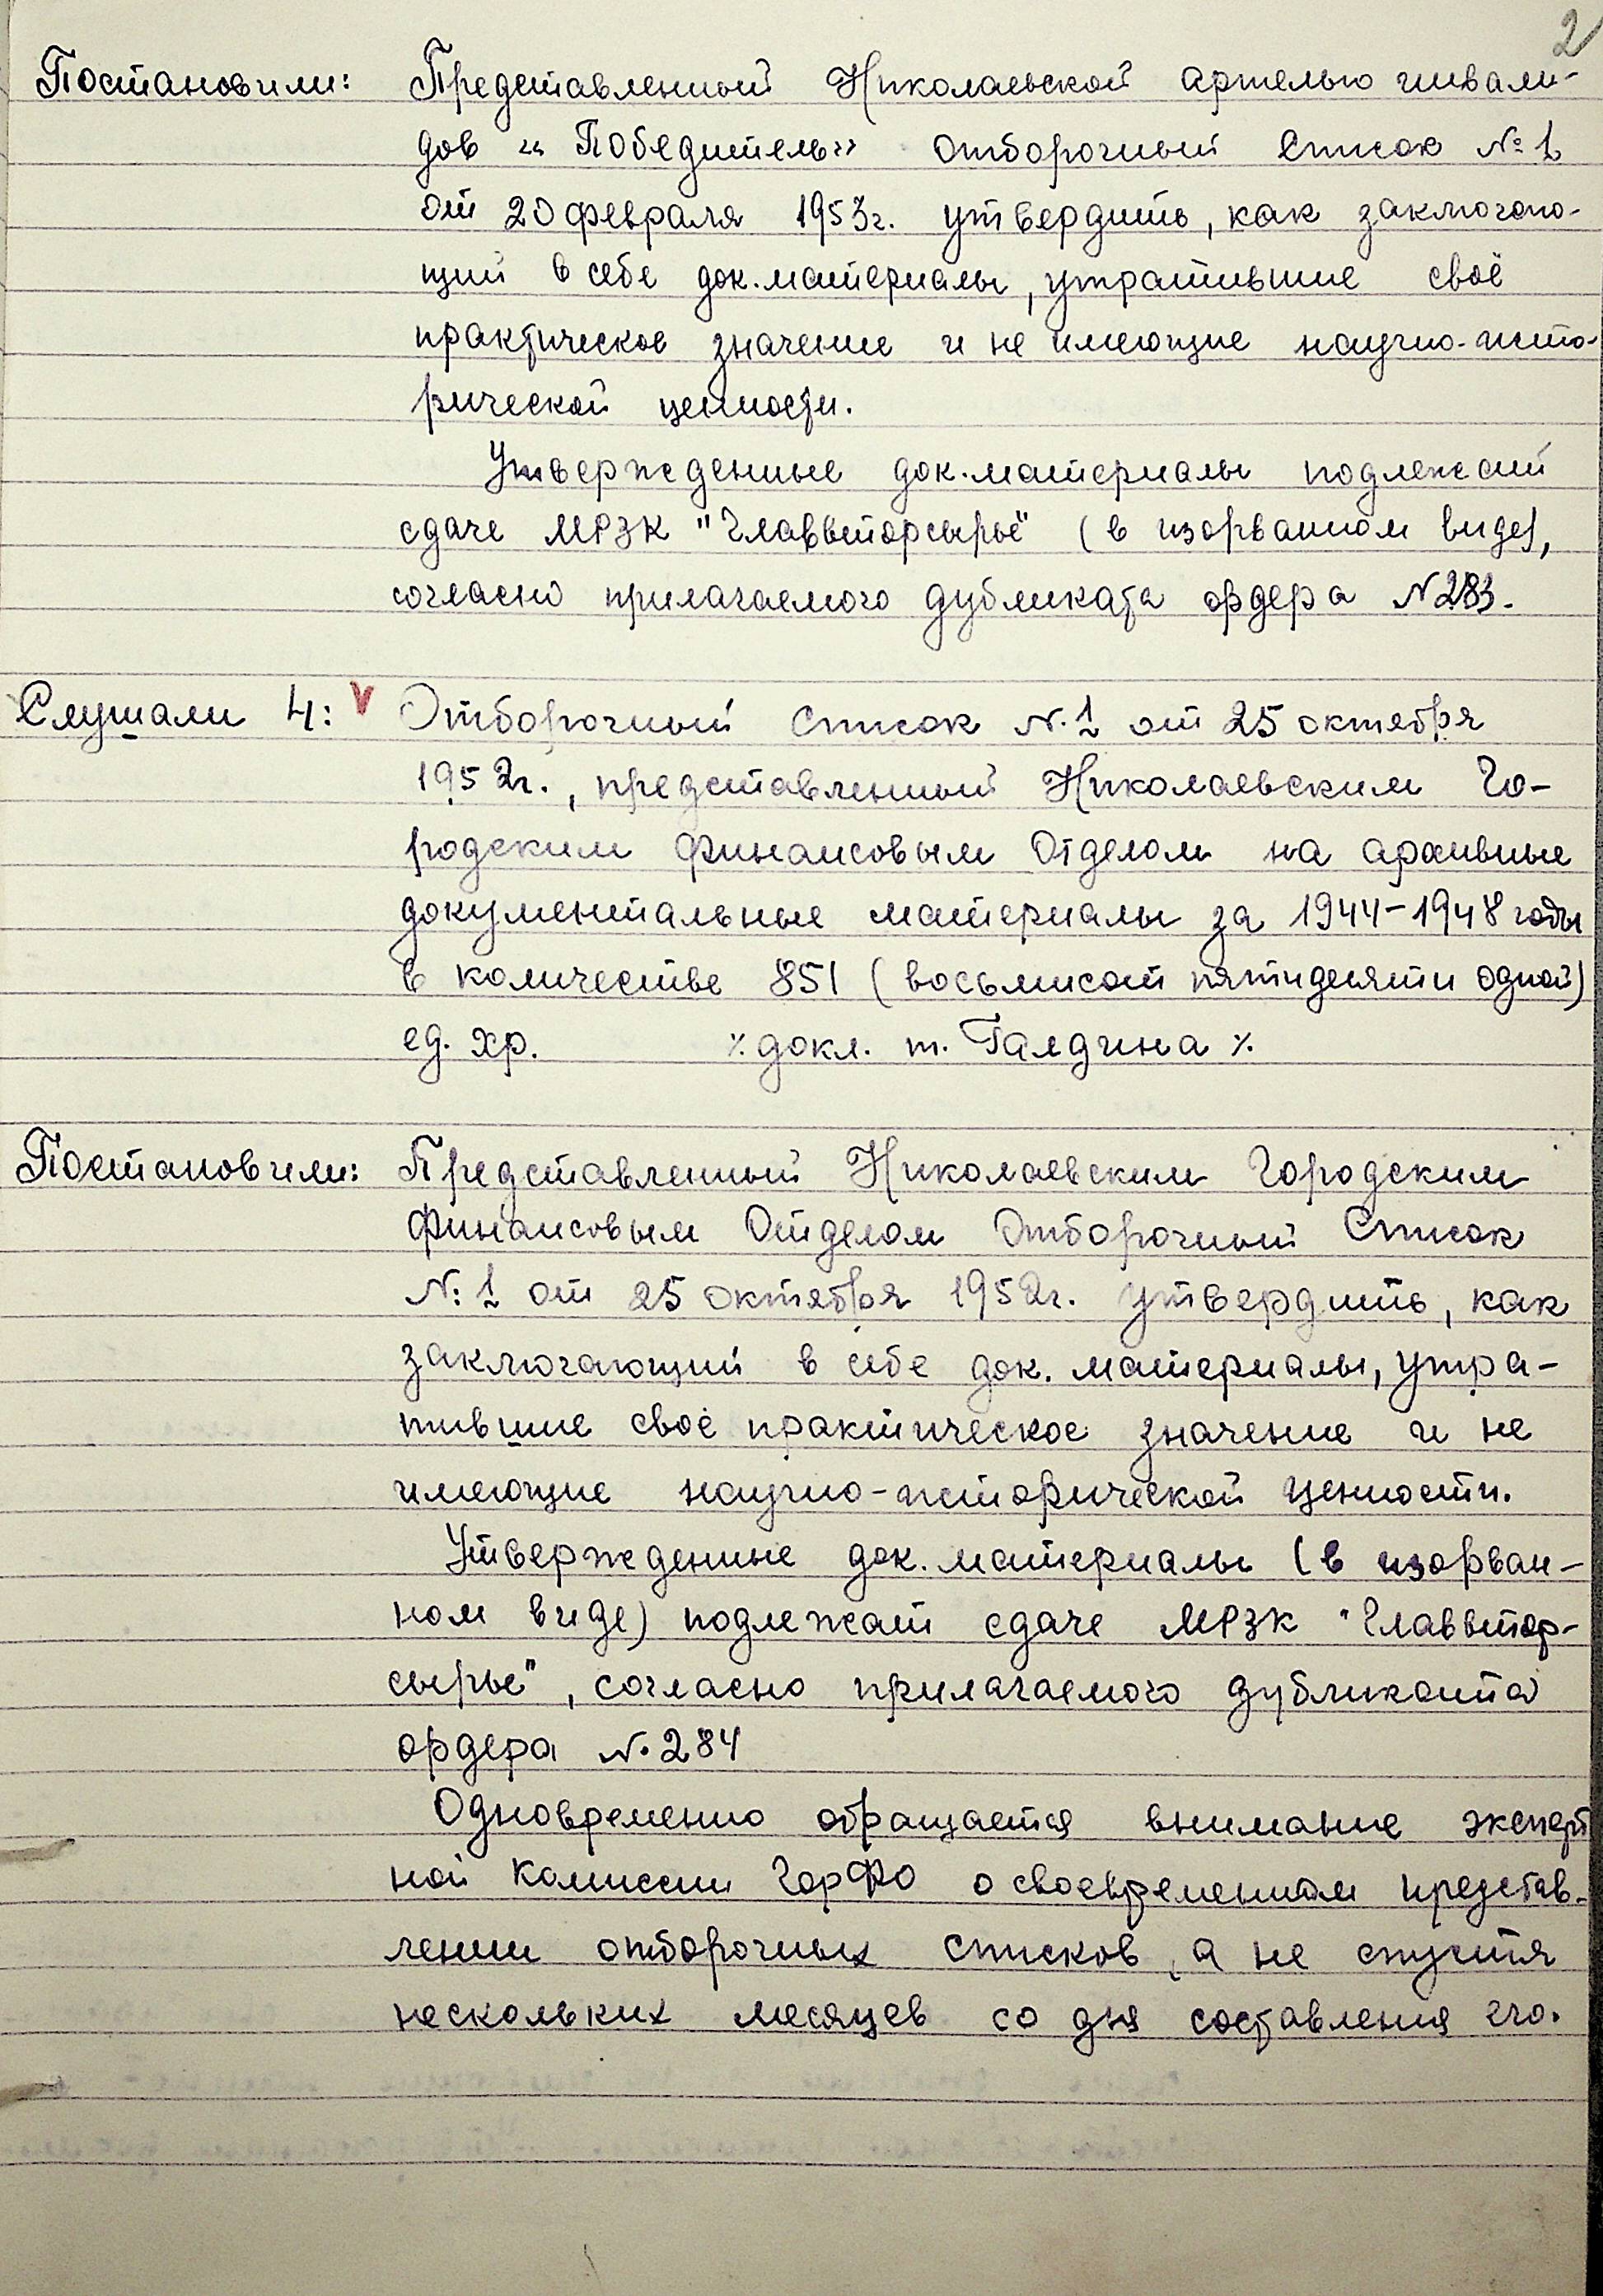 2
Постановили: Представленный Николаевской артелью инвали-
дов „Победитель” отборочный список № 1
от 20 февраля 1953г. утвердить, как заключаю-
щий в себе док. материалы, утратившие своё
практическое значение и не имеющие научно-исто-
рической ценности.
Утвержденные док. материалы подлежат
сдаче МРЗК "Главвторсырьё" (в изорванном виде),
согласно прилагаемого дубликата ордера №283.
Слушали 4: V Отборочный список №1 от 25 октября
1952г., представленный Николаевским Го-
родским финансовым Отделом на архивные
документальные материалы за 1944-1948 годы
в количестве 851 (восьмисот пятидесяти одной)
ед. хр. ٪ докл. т. Галдина ٪
Постановили: Представленный Николаевским Городским
финансовым Отделом Отборочный Список
№1 от 25 октября 1952г. утвердить, как
заключающий в себе док. материалы, утра-
тившие своё практическое значение и не
имеющие научно-исторической ценности.
Утвержденные док. материалы (в изорван-
ном виде) подлежат сдаче МРЗК "Главвтор-
сырьё", согласно прилагаемого дубликата
ордера №284
Одновременно обращается внимание эксперт
ной комиссии ГорФО о своевременном представ-
лении отборочных списков, а не спустя
нескольких месяцев со дня составления его.